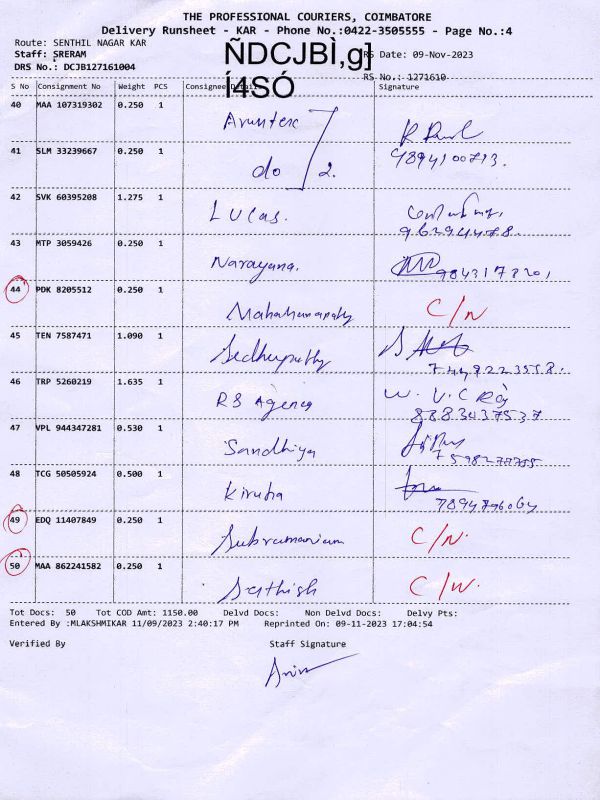 THE PROFESSIONAL COURIERS, COIMBATORE
Delivery Runsheet - KAR - Phone No.:0422-3505555 - Page No.:4
Route: SENTHIL NAGAR KAR
ÑDCJBÌ,g]
Staff: SRERAM RS Date: 09-Nov-2023
DRS No.: DCJB127161004
Í4SÓ RS No.: 1271610
S No Consignment No Weight PCS Consignee Signature
40 MAA 107319302 0.250 1
41 SLM 33239667 0.250 1 do 2.
9894100713.
42 SVK 60395208 1.275 1 Lucas.
43 MTP 3059426 0.250 1 Narayana.
44 PDK 8205512 0.250 1 C/N
45 TEN 7587471 1.090 1
46 TRP 5260219 1.635 1 RS Agency
8883437537
47 VPL 944347281 0.530 1 Sandhiya
48 TCG 50505924 0.500 1 Kiruba
49 EDQ 11407849 0.250 1 Subramaniam C/N.
50 MAA 862241582 0.250 1 Sathish C/N.
Tot Docs: 50 Tot COD Amt: 1150.00 Delvd Docs: Non Delvd Docs: Delvy Pts:
Entered By :MLAKSHMIKAR 11/09/2023 2:40:17 PM Reprinted On: 09-11-2023 17:04:54
Verified By Staff Signature